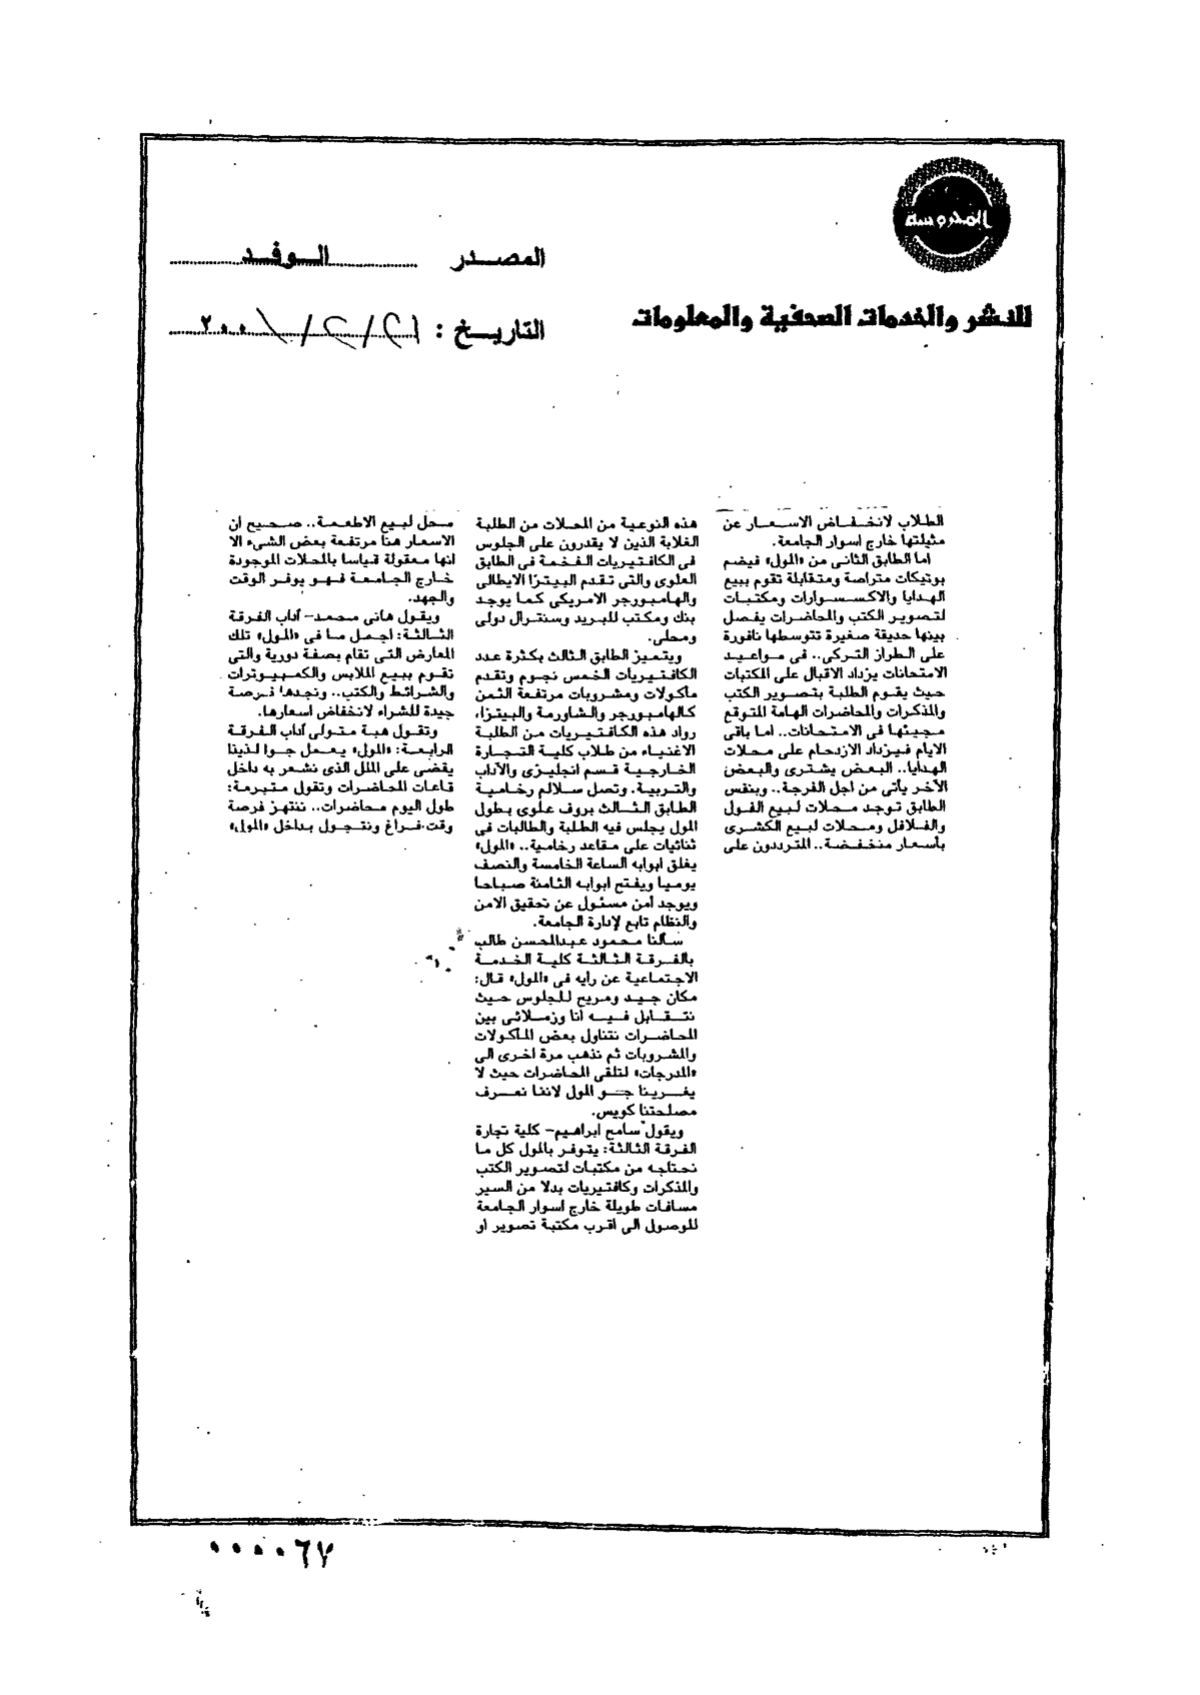 المحروسة
للنشر والخدمات الصحفية والمعلومات
المصدر الوفد
التاريخ : ٢١/٢/٢٠٠١
الطلاب لانخفاض الاسعار عن
مثيلتها خارج اسوار الجامعة.
اما الطابق الثانى من «المول» فيضم
بوتيكات متراصة ومتقابلة تقوم ببيع
الهدايا والاكسسوارات ومكتبات
لتصوير الكتب والمحاضرات يفصل
بينها حديقة صغيرة تتوسطها نافورة
على الطراز التركى.. فى مواعيد
الامتحانات يزداد الاقبال على المكتبات
حيث يقوم الطلبة بتصوير الكتب
والمذكرات والمحاضرات الهامة المتوقع
مجيئها فى الامتحانات.. اما باقى
الايام فيزداد الازدحام على محلات
الهدايا.. البعض يشترى والبعض
الآخر يأتى من اجل الفرجة.. وبنفس
الطابق توجد محلات لبيع الفول
والفلافل ومحلات لبيع الكشرى
بأسعار منخفضة.. المترددون على
هذه النوعية من المحلات من الطلبة
الغلابة الذين لا يقدرون على الجلوس
فى الكافتيريات الفخمة فى الطابق
العلوى والتى تقدم البيتزا الايطالى
والهامبورجر الامريكى كما يوجد
بنك ومكتب للبريد وسنترال دولى
ومحلى.
ويتميز الطابق الثالث بكثرة عدد
الكافتيريات الخمس نجوم وتقدم
ماكولات ومشروبات مرتفعة الثمن
كالهامبورجر والشاورمة والبيتزا،
رواد هذه الكافتيريات من الطلبة
الاغنياء من طلاب كلية التجارة
الخارجية قسم انجليزى والآداب
والتربية. وتصل سلالم رخامية
الطابق الثالث بروف علوى بطول
المول يجلس فيه الطلبة والطالبات فى
ثنائيات على مقاعد رخامية.. «المول»
يغلق ابوابه الساعة الخامسة والنصف
يوميا ويفتح ابوابه الثامنة صباحا
ويوجد أمن مسئول عن تحقيق الامن
والنظام تابع لإدارة الجامعة.
سألنا محمود عبدالمحسن طالب
بالفرقة الثالثة كلية الخدمة
الاجتماعية عن رأيه فى «المول» قال:
مكان جيد ومريح للجلوس حيث
نتقابل فيه أنا وزملائى بين
المحاضرات نتناول بعض المأكولات
والمشروبات ثم نذهب مرة اخرى الى
«المدرجات» لتلقى المحاضرات حيث لا
يغرينا جو المول لاننا نعرف
مصلحتنا كويس.
ويقول سامح ابراهيم- كلية تجارة
الفرقة الثالثة: يتوفر بالمول كل ما
نحتاجه من مكتبات لتصوير الكتب
والمذكرات وكافتيريات بدلا من السير
مسافات طويلة خارج اسوار الجامعة
للوصول الى اقرب مكتبة تصوير او
محل لبيع الاطعمة.. صحيح ان
الاسعار هنا مرتفعة بعض الشىء الا
انها معقولة قياسا بالمحلات الموجودة
خارج الجامعة فهو يوفر الوقت
والجهد.
ويقول هانى محمد- آداب الفرقة
الثالثة: اجمل ما فى «المول» تلك
المعارض التى تقام بصفة دورية والتى
تقوم ببيع الملابس والكمبيوترات
والشرائط والكتب.. ونجدها فرصة
جيدة للشراء لانخفاض اسعارها.
وتقول هبة متولى آداب الفرقة
الرابعة: «المول» يعمل جوا لذيذا
يقضى على الملل الذى نشعر به داخل
قاعات المحاضرات وتقول متبرمة:
طول اليوم محاضرات.. ننتهز فرصة
وقت فراغ ونتجول بداخل «المول»
٠٠٠٠٦٧